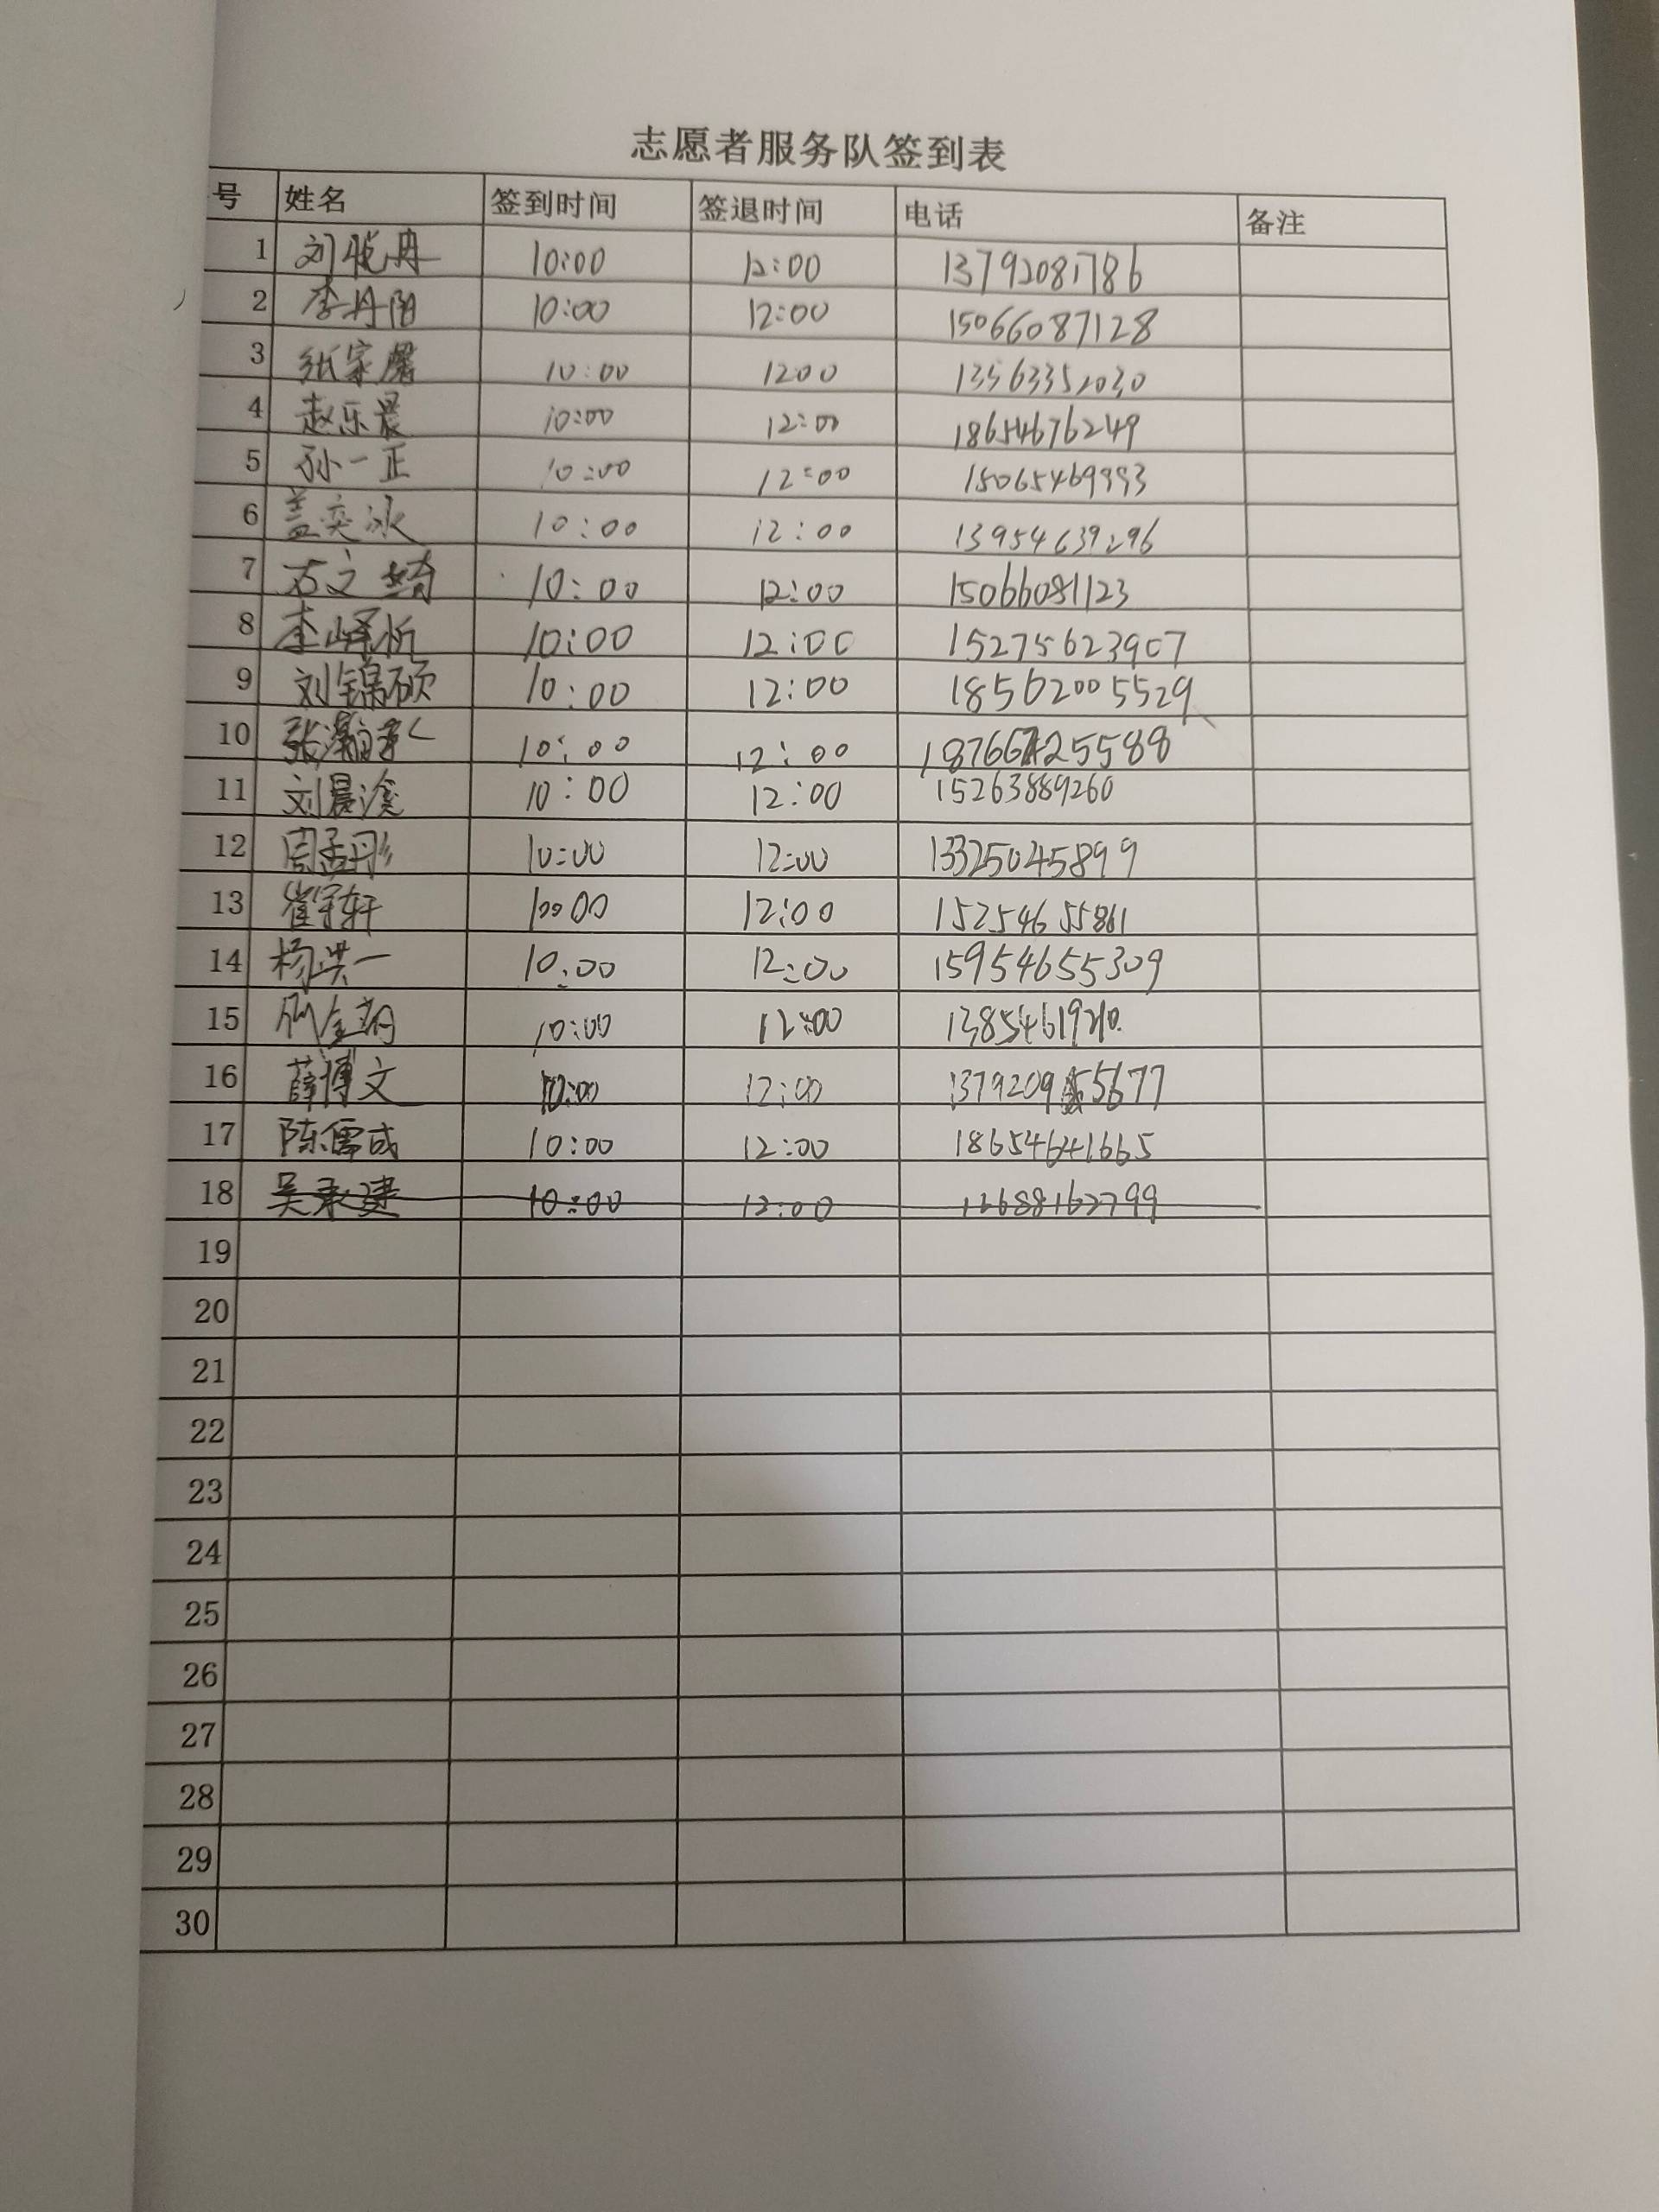 志愿者服务队签到表
号 姓名 签到时间 签退时间 电话 备注
1 刘悦冉 10:00 12:00 13792081786
2 李丹阳 10:00 12:00 15066087128
3 纸家馨 10:00 1200 13563352030
4 赵乐晨 10:00 12:00 18654676249
5 孙一正 10:00 12:00 15065469993
6 盖奕冰 10:00 12:00 13954639296
7 10:00 12:00 15066081123
8 李峄忻 10:00 12:00 15275623907
9 刘锦硕 10:00 12:00 18562005529
10 10:00 12:00
11 刘晨 10:00 12:00 15263889260
12 周孟彤 10:00 12:00 13325045899
13 崔宇轩 10:00 12:00 15254655861
14 杨洪一 10:00 12:00 15954655309
15 10:00 12:00
16 薛博文 10:00 12:00
17 陈儒成 10:00 12:00 18654641665
18 吴承建 10:00 12:00
19
20
21
22
23
24
25
26
27
28
29
30